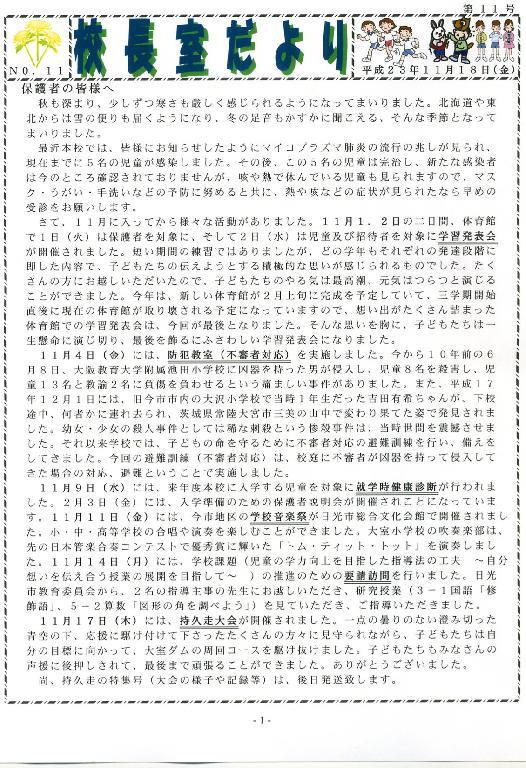 第11号
NO. 11
校長室だより
平成23年11月18日(金)
保護者の皆様へ
秋も深まり、少しずつ寒さも厳しく感じられるようになってまいりました。北海道や東
北からは雪の便りも届くようになり、冬の足音もかすかに聞こえる、そんな季節となって
まいりました。
最近本校では、皆様にお知らせしたようにマイコプラズマ肺炎の流行の兆しが見られ、
現在までに5名の児童が感染しました。その後、この5名の児童は完治し、新たな感染者
は今のところ確認されておりませんが、咳や熱で休んでいる児童も見られますので、マス
ク・うがい・手洗いなどの予防に努めると共に、熱や咳などの症状が見られたなら早めの
受診をお願いします。
さて、11月に入ってから様々な活動がありました。11月1、2日の二日間、体育館
で1日(火)は保護者を対象に、そして2日(水)は児童及び招待者を対象に学習発表会
が開催されました。短い期間の練習ではありましたが、どの学年もそれぞれの発達段階に
即した内容で、子どもたちの伝えようとする積極的な思いが感じられるものでした。たく
さんの方にお越しいただいたので、子どもたちのやる気は最高潮、元気はつらつと演じる
ことができました。今年は、新しい体育館が2月上旬に完成を予定していて、三学期開始
直後に現在の体育館が取り壊される予定になっていますので、想い出がたくさん詰まった
体育館での学習発表会は、今回が最後となりました。そんな思いを胸に、子どもたちは一
生懸命に演じ切り、最後を飾るにふさわしい学習発表会になりました。
11月4日(金)には、防犯教室(不審者対応)を実施しました。今から10年前の6
月8日、大阪教育大学附属池田小学校に凶器を持った男が侵入し、児童8名を殺害し、児
童13名と教諭2名に負傷を負わせるという痛ましい事件がありました。また、平成17
年12月1日には、旧今市市内の大沢小学校で当時1年生だった吉田有希ちゃんが、下校
途中、何者かに連れ去られ、茨城県常陸大宮市三美の山中で変わり果てた姿で発見されま
した。幼女・少女の殺人事件としては稀な刺殺という惨殺事件は、当時世間を震撼させま
した。それ以来学校では、子どもの命を守るために不審者対応の避難訓練を行い、備えを
してきました。今回の避難訓練(不審者対応)は、校庭に不審者が凶器を持って侵入して
きた場合の対応、避難ということで実施しました。
11月9日(水)には、来年度本校に入学する児童を対象に就学時健康診断が行われま
した。2月3日(金)には、入学準備のための保護者説明会が開催されことになっていま
す。11月11日(金)には、今市地区の学校音楽祭が日光市総合文化会館で開催されまし
た。小・中・高等学校の合唱や演奏を楽しむことができました。大室小学校の吹奏楽部は、
先の日本管楽合奏コンテストで優秀賞に輝いた「トム・ティット・トット」を演奏しまし
た。11月14日(月)には、学校課題(児童の学力向上を目指した指導法の工夫 ~自分の
想いを伝え合う授業の展開を目指して~ )の推進のための要請訪問を行いました。日光
市教育委員会から、2名の指導主事の先生にお越しいただき、研究授業(3-1国語「修
飾語」、5-2算数「図形の角を調べよう」)を見ていただき、ご指導いただきました。
11月17日(木)には、持久走大会が開催されました。一点の曇りのない澄み切った
青空の下、応援に駆け付けて下さったたくさんの方々に見守られながら、子どもたちは自
分の目標に向かって、大室ダムの周回コースを駆け抜けました。子どもたちもみなさんの
声援に後押しされて、最後まで頑張ることができました。ありがとうございました。
尚、持久走の特集号(大会の様子や記録等)は、後日発送致します。
- 1 -